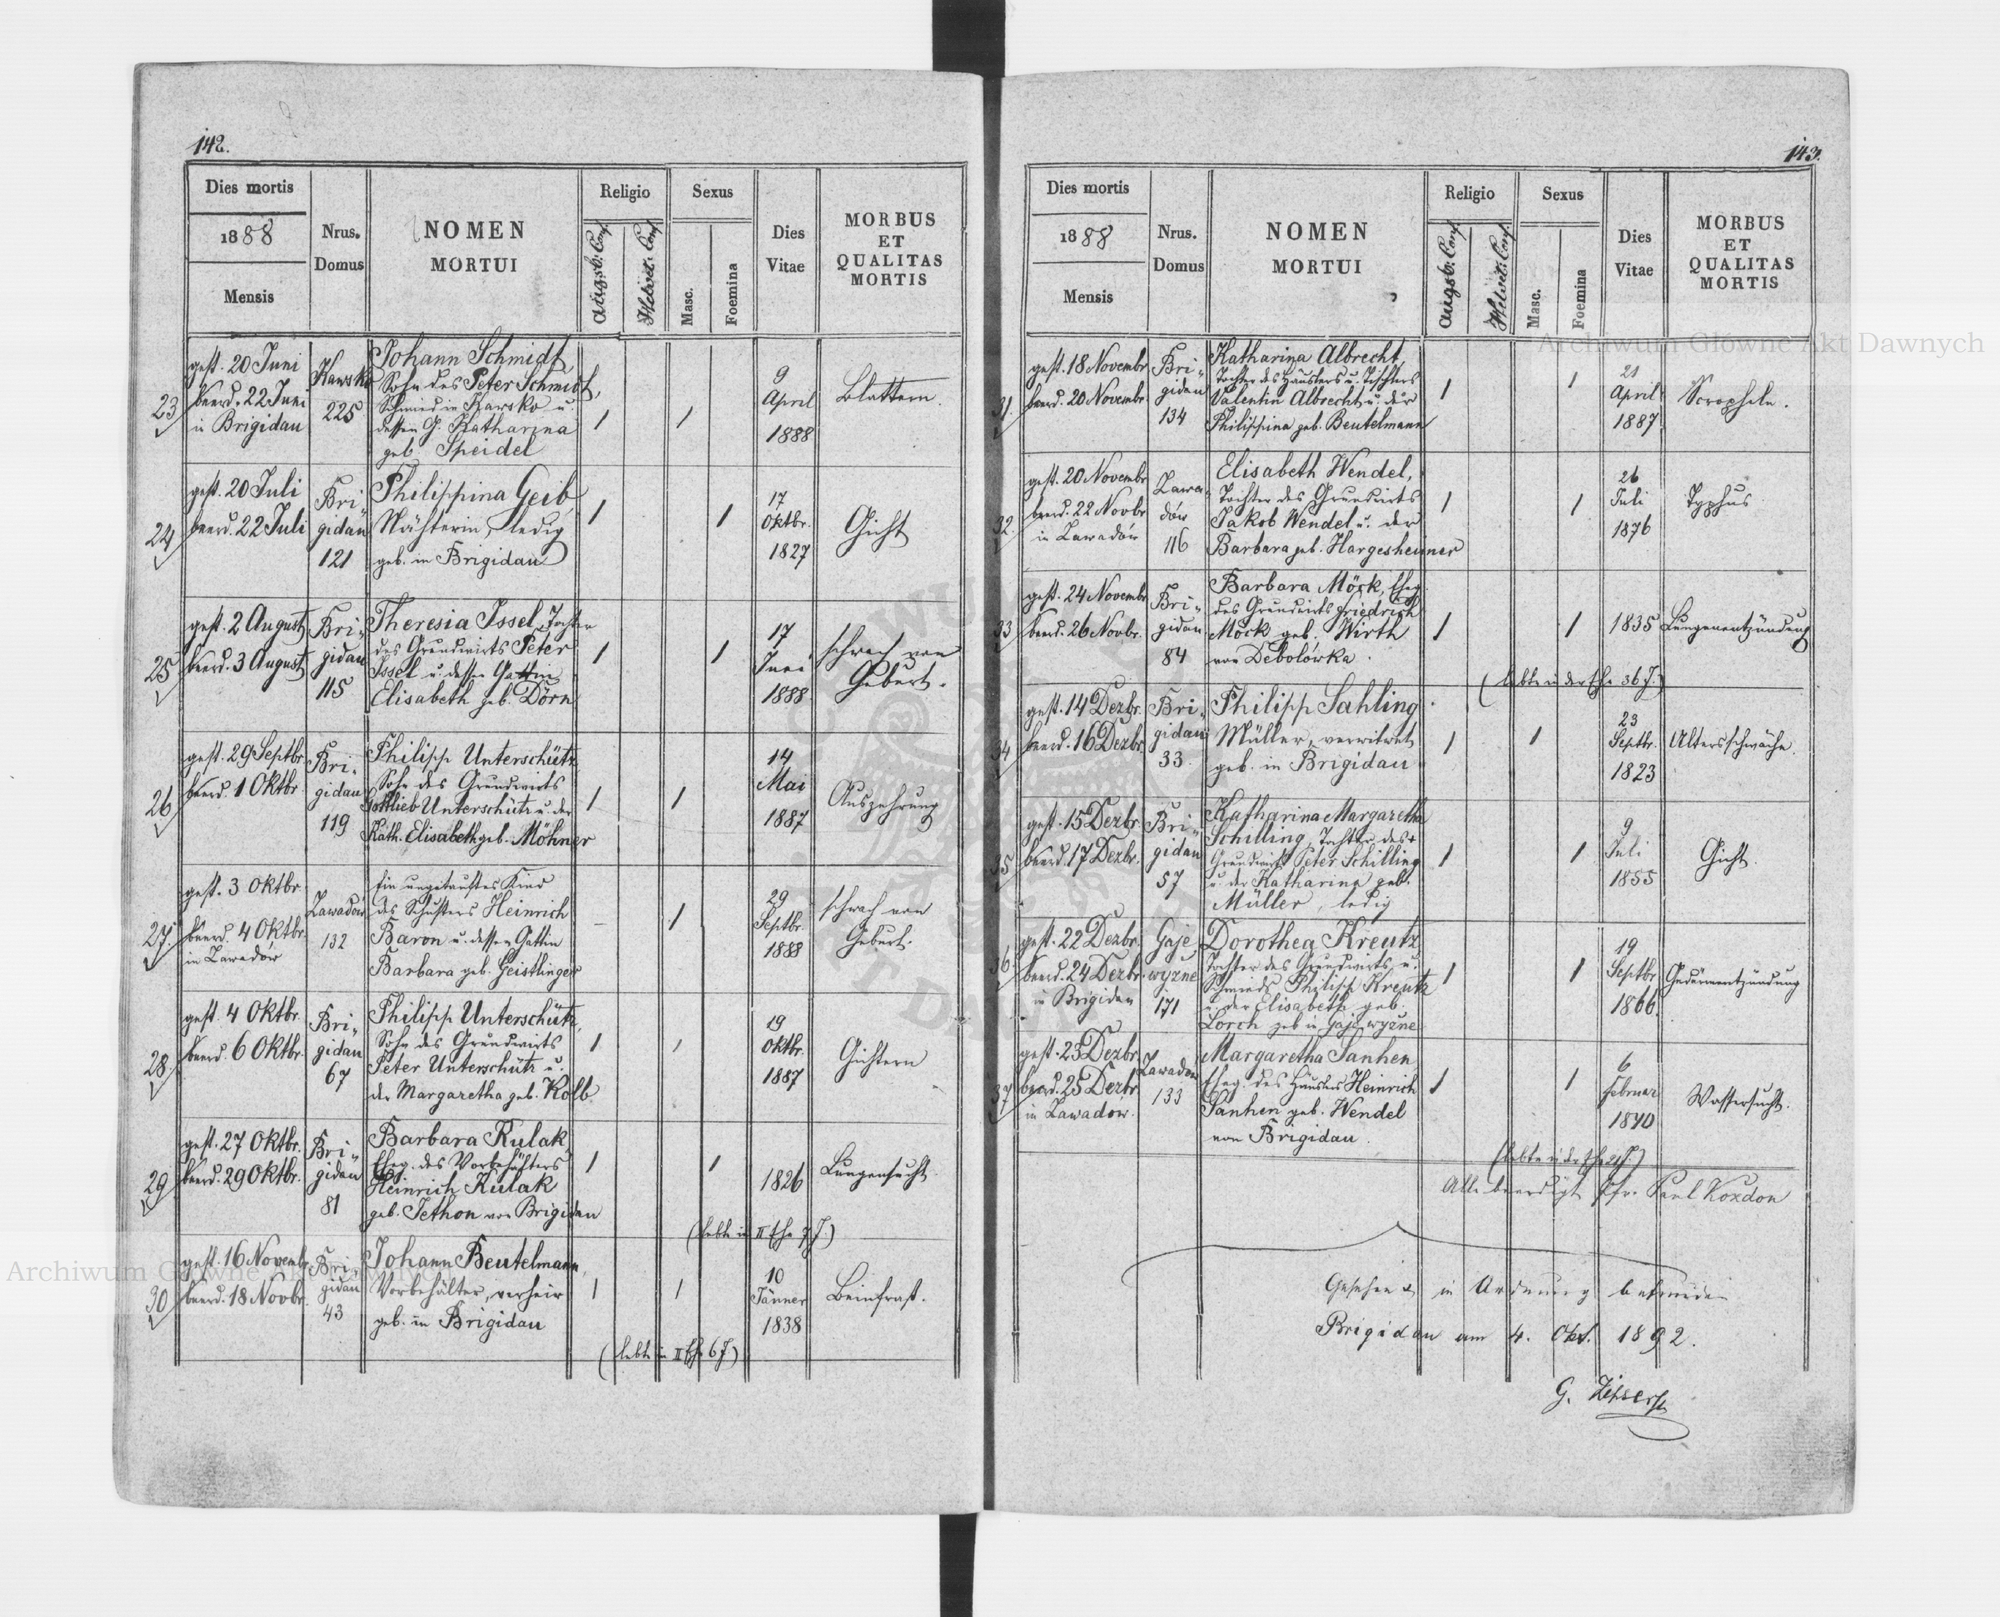 142.
Dies mortis
1888
Mensis
Nrus.
Domus
NOMEN
MORTUI
Religio
Augsb. Conf.
Helvet. Conf.
Sexus
Masc.
Foemina
Dies
Vitae
MORBUS
ET
QUALITAS
MORTIS
23
gest. 20 Juni
beerd. 22 Juni
in Brigidau
225
Johann Schmidt,
Sohn des Peter Schmidt,
Schmied in u.
dessen G. Katharina
geb. Speidel
9
April
1888
Blattern.
24
gest. 20 Juli
beerd. 22 Juli
Bri-
gidau
121
Philippina Geib,
Nähterin, ledig
geb. in Brigidau
17
Oktbr.
1827
Gicht
25
gest. 2 August
beerd. 3 August
Bri-
gidau
115
Theresia Issel, Tochter
des Grundwirts Peter
Issel u. dessen Gattin
Elisabeth geb. Dörn
17
Juni
1888
schwach von
Geburt.
26
gest. 29 Septbr.
beerd. 1 Oktbr.
Bri-
gidau
119
Philipp Unterschütz
Sohn des Grundwirts
Gottlieb Unterschütz u. der
Kath. Elisabeth geb. Möhner
14
Mai
1887
Auszehrung
27.
gest. 3 Oktbr.
beerd. 4 Oktbr.
in Zawadów
Zawadow
132
Ein ungetauftes Kind
des Schusters Heinrich
Baron u. dessen Gattin
Barbara geb. Geistlinger
29
Septbr.
1888
schwach von
Geburt.
28
gest. 4 Oktbr.
beerd. 6 Oktbr.
Bri-
gidau
67
Philipp Unterschütz,
Sohn des Grundwirts
Peter Unterschütz u.
der Margaretha geb. Kolb
19
Oktbr.
1887
Gichtern
29
gest. 27 Oktbr.
beerd. 29 Oktbr.
Bri-
gidau
81
Barbara Kulak
Eheg. des Vorbehälters
Heinrich Kulak
geb. Jethon von Brigidau
1826
Lungensucht
(lebte in II Ehe 7 J.)
30
gest. 16 Novembr.
beerd. 18 Novbr.
Bri-
gidau
43
Johann Beutelmann,
Vorbehälter, verheir
geb. in Brigidau
10
Jänner
1838
Beinfrast.
(lebte in II Ehe 6 J)
143.
Dies mortis
1888
Mensis
Nrus.
Domus
NOMEN
MORTUI
Religio
Augsb. Conf.
Helvet. Conf.
Sexus
Masc.
Foemina
Dies
Vitae
MORBUS
ET
QUALITAS
MORTIS
31.
gest. 18 Novembr
beerd. 20 Novembr.
Bri-
gidau
134
Katharina Albrecht,
Tochter des Häuslers u. Tischlers
Valentin Albrecht u. der
Philippina geb. Beutelmann
21
April
1887
Scropheln.
32.
gest. 20 Novembr
beerd. 22 Novbr
in Zawadów
Zawa-
dów
116
Elisabeth Wendel,
Tochter des Grundwirts
Jakob Wendel u. der
Barbara geb. Hargesheimer
26
Juli
1876
Typhus
33
gest. 24 Novembr
beerd. 26 Novbr.
Bri-
gidau
84
Barbara Möck, Eheg.
des Grundwirts Friedrich
Möck geb. Wirth
von Debolówka.
1835
Lungenentzündung
(lebte in der Ehe 36 J.)
34
gest. 14 Dezbr.
beerd. 16 Dezbr
Bri-
gidau
33.
Philipp Sahling
Müller, verwitwet
geb. in Brigidau
23
Septbr.
1823
Altersschwäche.
35
gest. 15 Dezbr.
beerd. 17 Dezbr.
Bri-
gidau
57
Katharina Margaretha
Schilling, Tochter des †
Grundwirts Peter Schilling
u. der Katharina geb.
Müller, ledig
9
Juli
1855
Gicht.
36
gest. 22 Dezbr.
beerd. 24 Dezbr.
in Brigidau
Gaje
wyzne
171
Dorothea Kreutz
Tochter des Grundwirts u.
Schmieds Philipp Kreutz
u. der Elisabeth geb.
Lorch geb in Gaje wyzne
19
Septbr
1866.
Gedärmentzündung
37
gest. 23 Dezbr.
beerd. 25 Dezbr
in Zawadow.
Zawadow
133
Margaretha Sanhen
Eheg. des Häuslers Heinrich
Sanhen geb. Wendel
von Brigidau.
6
Februar
1840
Wassersucht.
Alle beerdigt Pfr. Paul Kozdon
Gesehen & in Ordnung befunden
Brigidau am 4. Okt. 1892.
G.
Archiwum Główne Akt Dawnych
Archiwum Główne Akt Dawnych